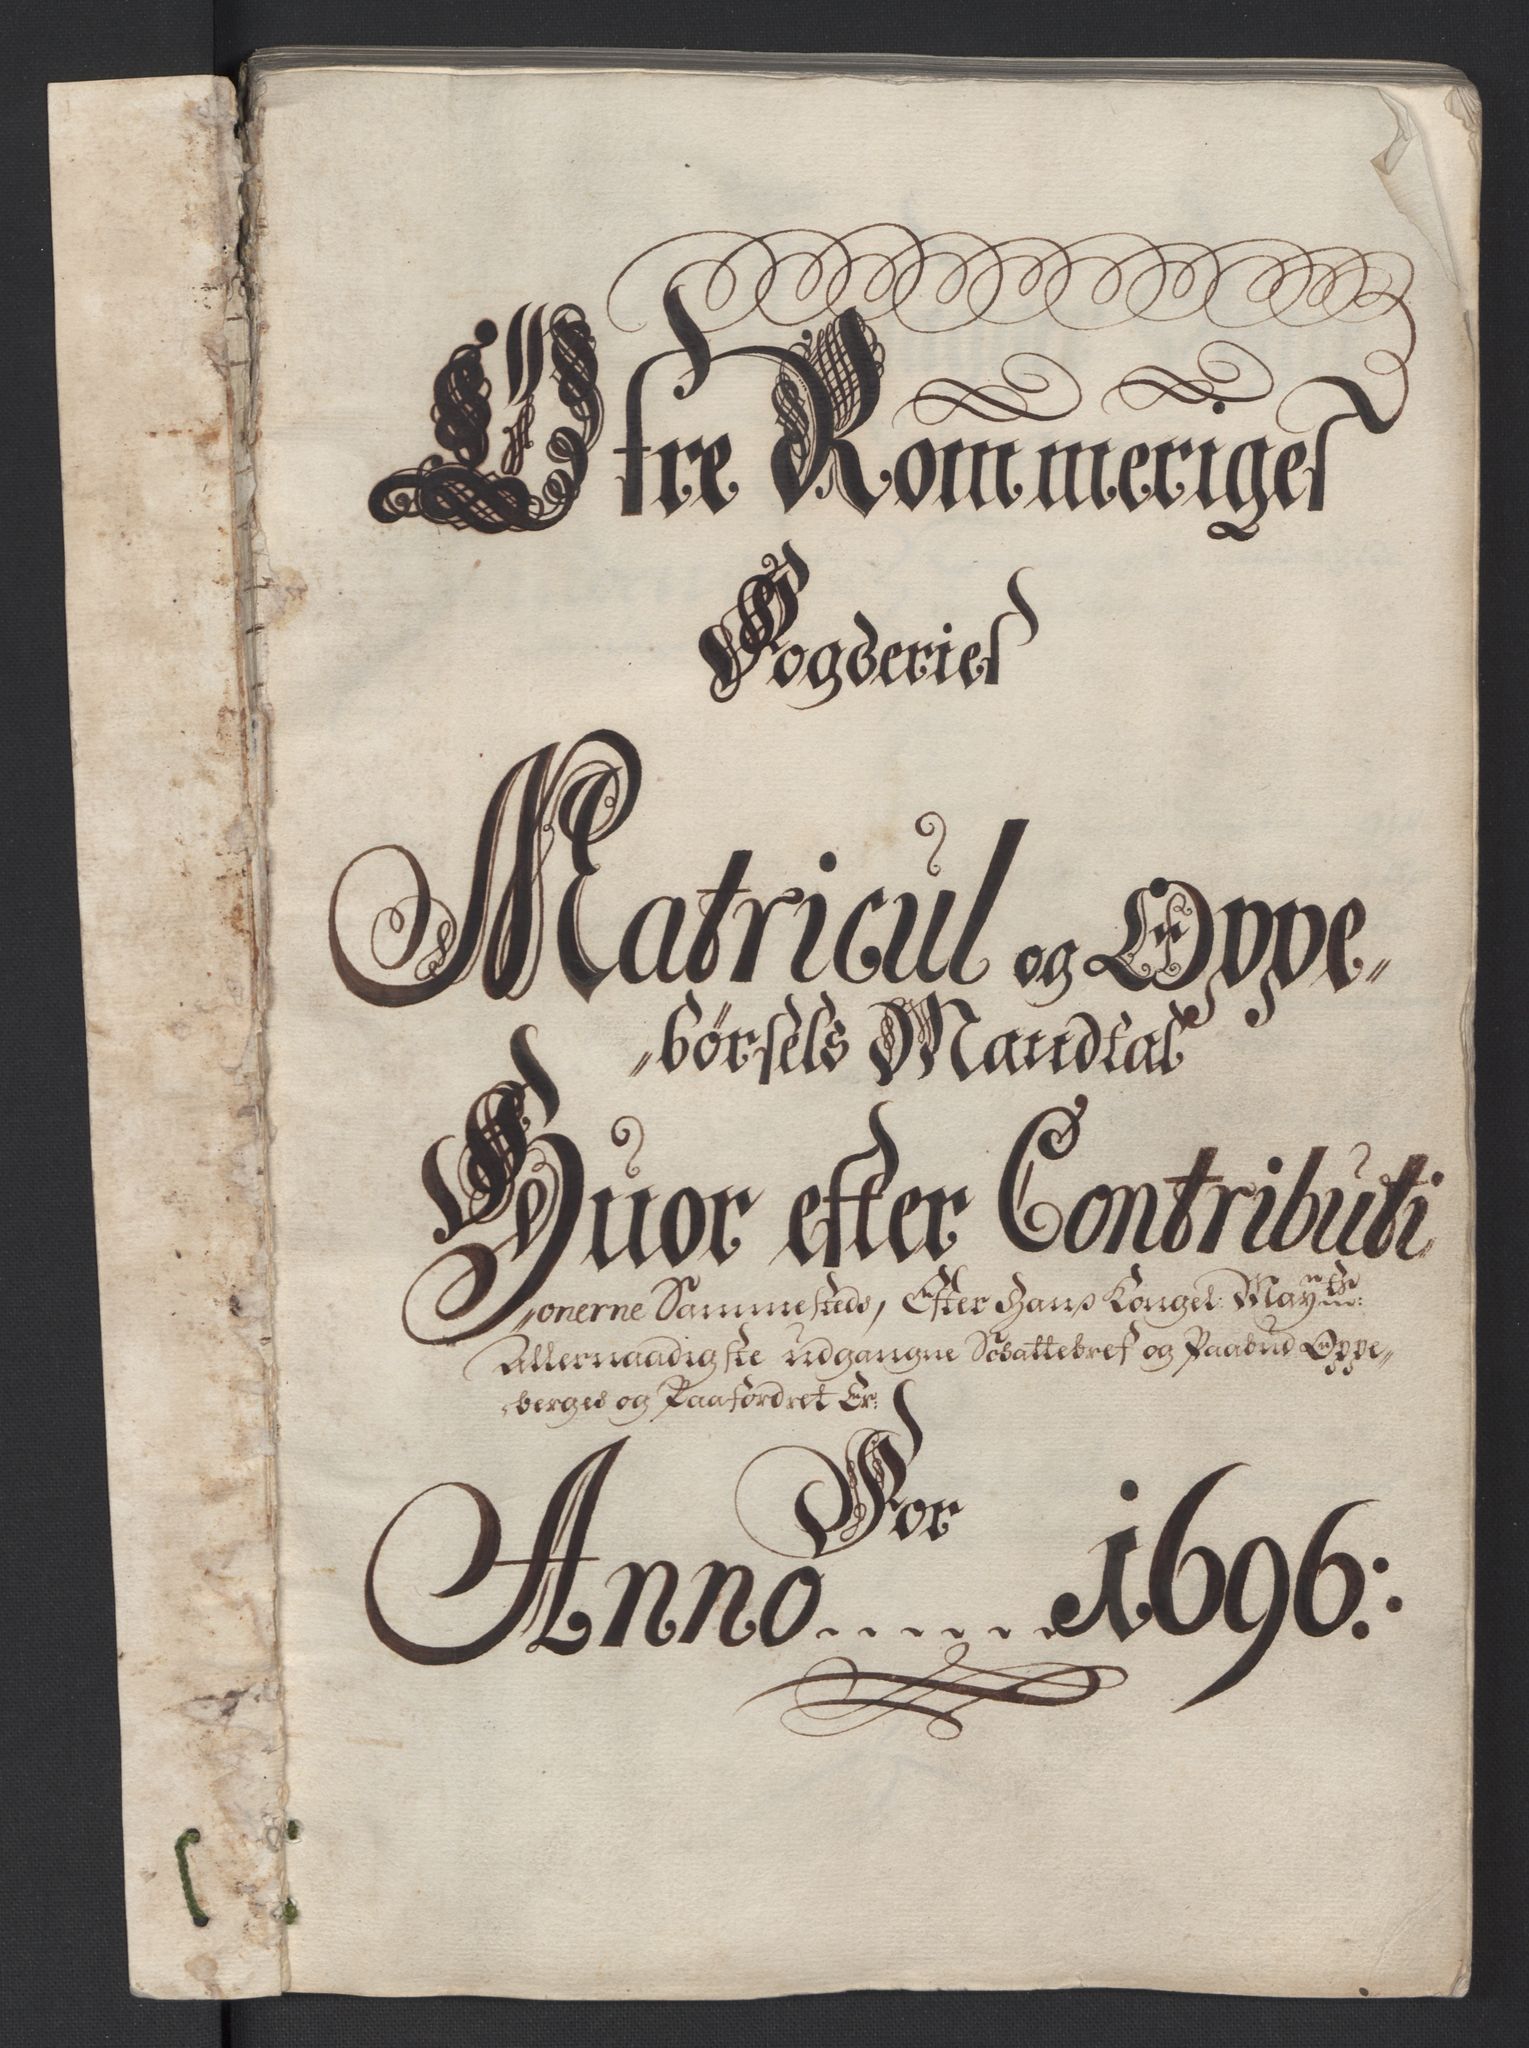 Øfre Rommeriges
Fogderies
Matricul og Oppe„
„børsels Mandtal
Huor efter Contributi„
„onerne Sammesteds, Efter Hans Kongel: Mayts:
Allernaadigste udgangne Schattebref og Paabud Oppe„
„berges og Paafordret Er:
For
Anno...... 1696: